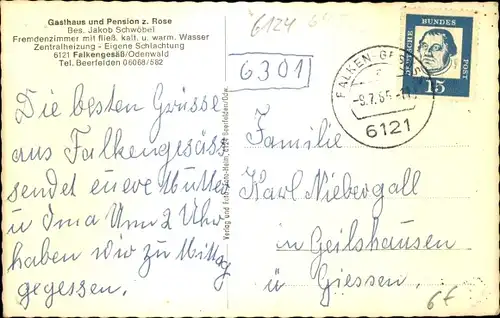 Gasthaus und Pension z. Rose
Bes. Jakob Schwöbel
Fremdenzimmer mit fließ. kalt. u. warm. Wasser
Zentralheizung - Eigene Schlachtung
6121 Falkengesäß/Odenwald
Tel. Beerfelden 06068/582
Die besten Grüsse
aus Falkengesäss
sendet euere Mutter
u Oma Um 2 Uhr
haben wir zu Mittag
gegessen.
6124
6301
DEUTSCHE BUNDES POST
15
FALKEN-GES
-9.7.65-11
6121
Familie
Karl Niebergall
in Geilshausen
ü Giessen.
6f